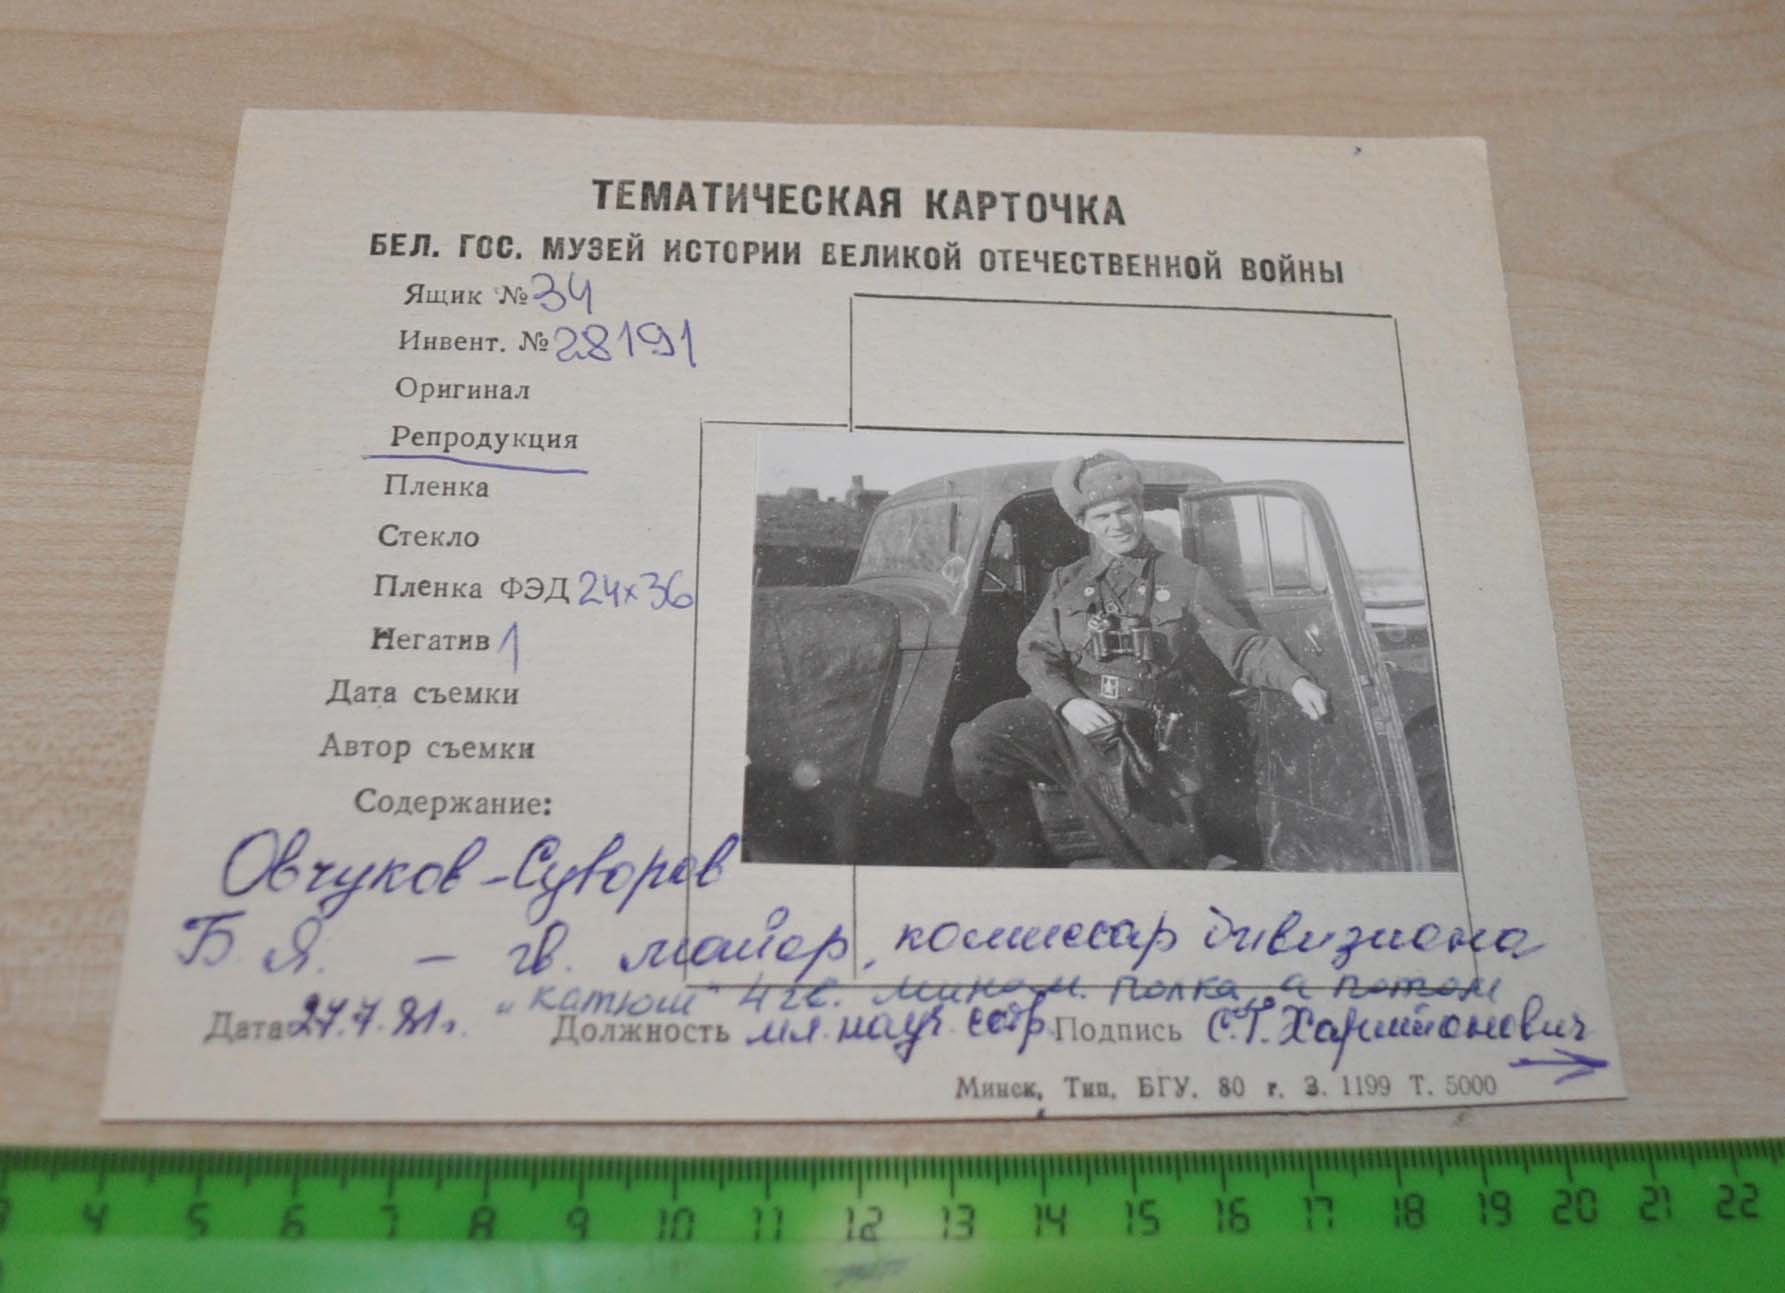 ТЕМАТИЧЕСКАЯ КАРТОЧКА
БЕЛ. ГОС. МУЗЕЙ ИСТОРИИ ВЕЛИКОЙ ОТЕЧЕСТВЕННОЙ ВОЙНЫ
Ящик № 34
Инвент. № 28191
Оригинал
Репродукция
Пленка
Стекло
Пленка ФЭД 24х36
Негатив 1
Дата съемки
Автор съемки
Содержание:
Овчуков-Суворов
Б. Я. – гв. майор, комиссар дивизиона
"катюш" 4 гв. мином. полка, а потом
Дата 27.7.81г. Должность мл. науч. сотр. Подпись С.Г. Харитонович
Минск, Тип. БГУ. 80 г. З. 1199 Т. 5000
3 4 5 6 7 8 9 10 11 12 13 14 15 16 17 18 19 20 21 22